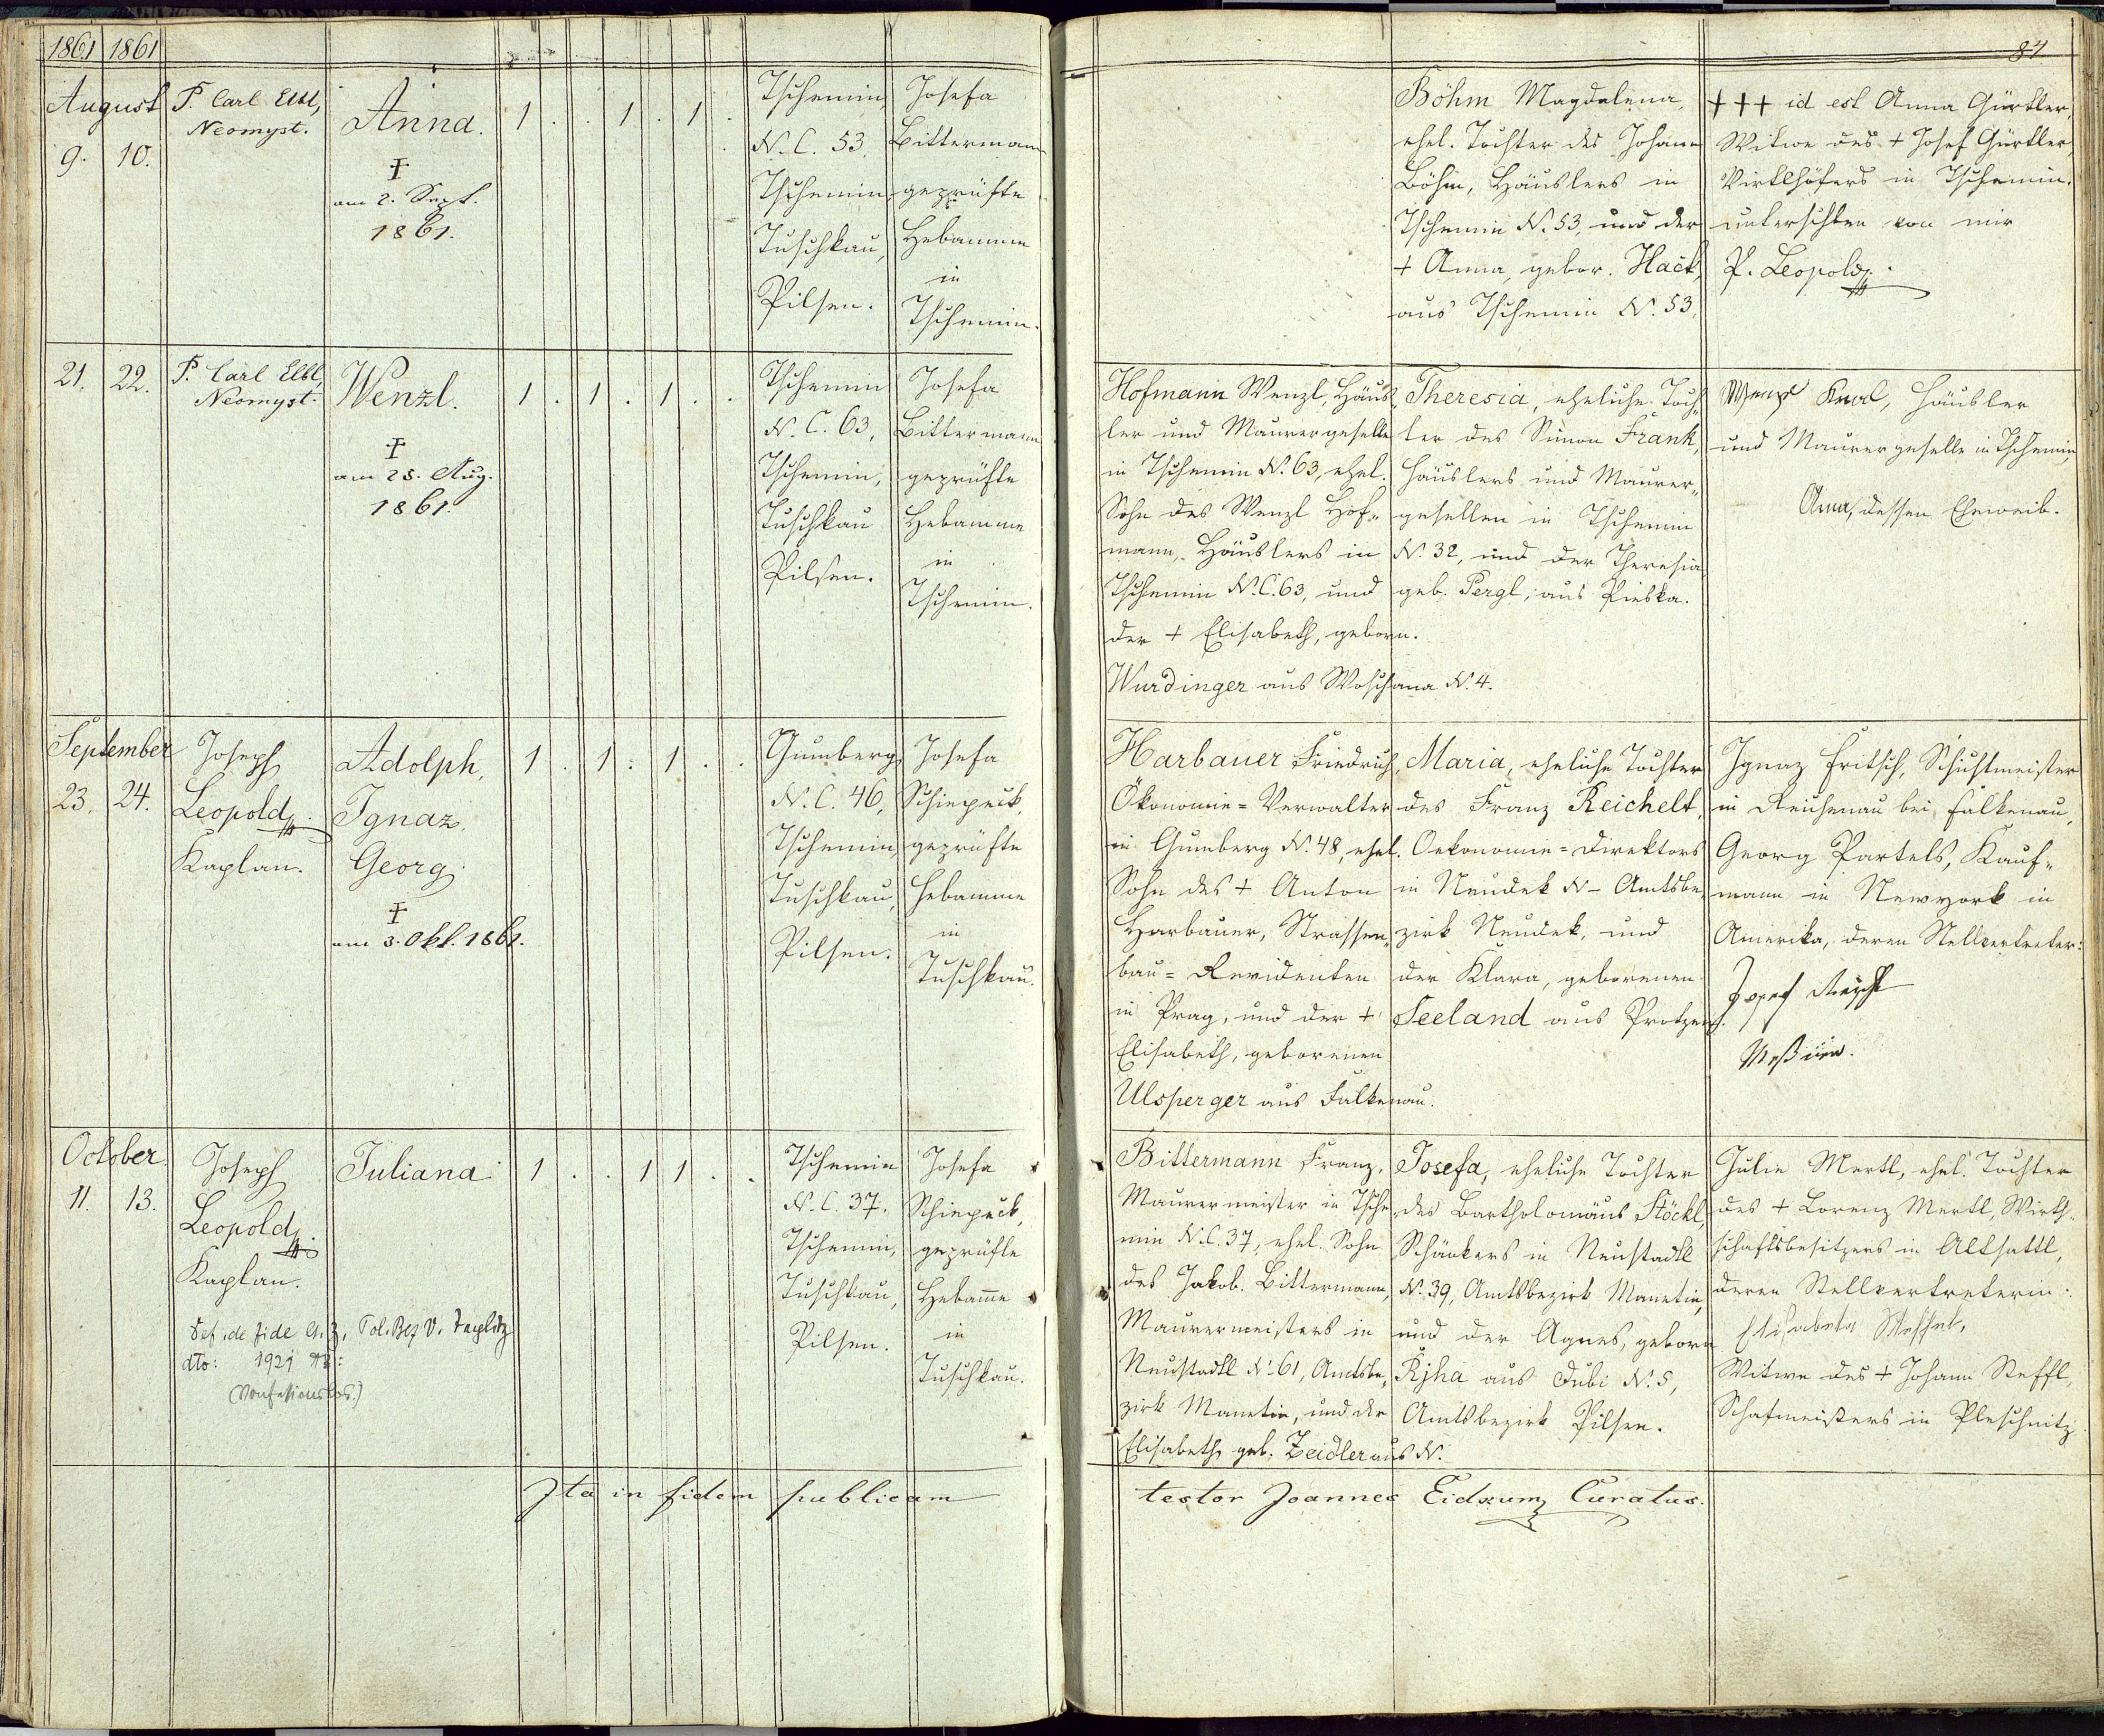 1861 1861
84
August
9. 10.
P. Carl Elbl,
Neomyst.
Anna.
†
am 2. Sept.
1861.
1 . . 1 . 1 .
Tschemin,
N. C. 53,
Tschemin,
Tuschkau,
Pilsen.
Josefa
Bittermann
geprüfte
Hebamme
in
Tschemin.
Böhm Magdalena,
ehel. Tochter des Johann
Böhm, Häuslers in
Tschemin N. 53, und der
+ Anna, gebor. Hack,
aus Tschemin N. 53.
+++ id est Anna Gürtler,
Witwe des + Josef Gürtler,
Virtlhöfers in Tschemin.
von mir
P. Leopold
21. 22.
P. Carl Elbl,
Neomyst.
Wenzl.
†
am 25. Aug.
1861.
1 . 1 . 1 . .
Tschemin
N. C. 63,
Tschemin,
Tuschkau
Pilsen.
Josefa
Bittermann
geprüfte
Hebamme
in
Tschemin.
Hofmann Wenzl, Häus-
ler und Maurergeselle
in Tschemin N. 63, ehel.
Sohn des Wenzl Hof-
mann, Häuslers in
Tschemin N.C. 63, und
der + Elisabeth, geborn.
Wurdinger aus Woschana N. 4.
Theresia, eheliche Toch-
ter des Simon Frank,
Häuslers und Maurer-
gesellen in Tschemin
N. 32, und der Theresia
geb. Pergl, aus Piebka.
Wenzl Häusler
und Maurergeselle in Tschemin
Anna, dessen Eheweib.
September
23. 24.
Joseph
Leopold
Kaplan.
Adolph,
Ignaz,
Georg
†
am 3. Okt. 1861.
1 . 1 . 1 . .
Gumberg
N. C. 46,
Tschemin,
Tuschkau,
Pilsen.
Josefa
Schiepeck,
geprüfte
Hebamme
in
Tuschkau.
Harbauer Friedrich,
Ökonomie-Verwalter
in Gumberg N. 48, ehel.
Sohn des + Anton
Harbauer, Strassen-
bau-Revidenten
in Prag, und der +
Elisabeth, geborenen
Ulsperger aus Falkenau.
Maria, eheliche Tochter
des Franz Reichelt,
Oekonomie-Direktors
in Neudek N – Amtsbe-
zirk Neudek, und
der Klara, geborenen
Seeland aus
Ignaz Fritsch, Schuhmeister
in Reichenau bei Falkenau,
Georg Bartels, Kauf-
mann in Newyork in
Amerika, deren Stellvertreter:
Josef
October
11. 13.
Joseph
Leopold
Kaplan.
Juliana
Def. de fide G. Z. Pol. Bez V. Teplitz
dto: 1921
(Konfessionslos.)
1 . . 1 1 . .
Tschemin
N. C. 37.
Tschemin,
Tuschkau,
Pilsen.
Josefa
Schiepeck,
geprüfte
Hebam̅e
in
Tuschkau.
Bittermann Franz,
Maurermeister in Tsche-
min N.C. 37, ehel. Sohn
des Jakob Bittermann,
Maurermeisters in
Neustadtl N. 61, Amtsbe-
zirk Manetin, und der
Elisabeth, geb. Zeidler aus N.
Josefa, eheliche Tochter
des Bartholomäus Stöckl,
Schänkers in Neustadtl
N. 39, Amtsbezirk Manetin,
und der Agnes, geborn
Rjha aus Dubi N. 5,
Amtsbezirk Pilsen.
Julie Mertl, ehel. Tochter
des + Lorenz Mertl, Wirth-
schaftsbesitzers in Altsattl,
deren Stellvertreterin:
Elisabeta
Witwe des + Johann Steffl,
Schafmeisters in Pleschnitz
Ita in fidem publicam
testor Joannes Eidxum Curatus.